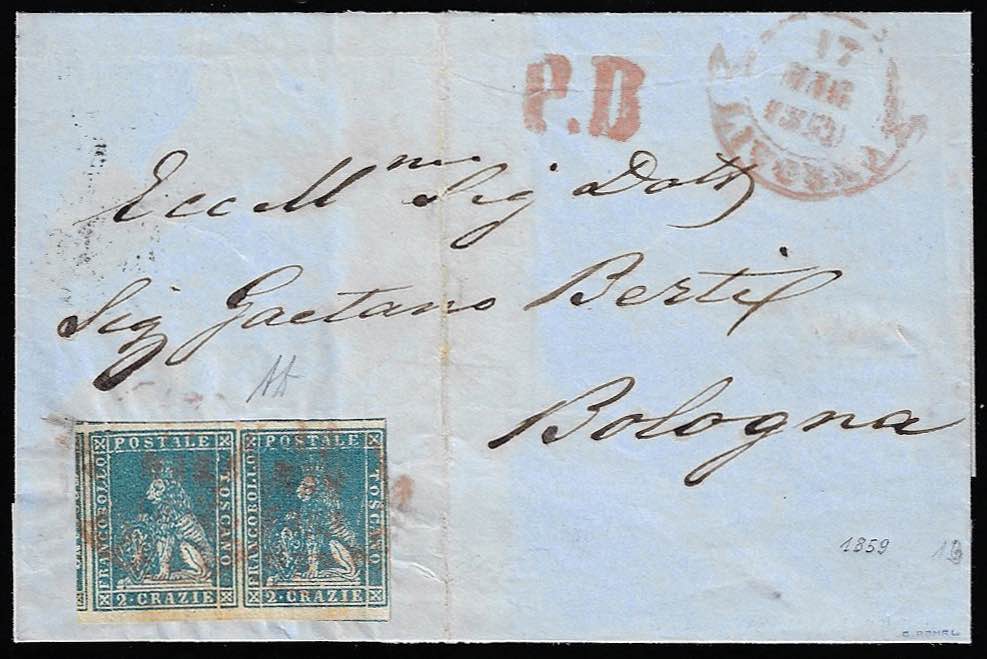 P.D
17
MAG
EccM.mo Sig Dott
Sig Gaetano Berti
Bologna
POSTALE POSTALE
FRANCOBOLLO TOSCANO FRANCOBOLLO TOSCANO
2·CRAZIE 2·CRAZIE
1859